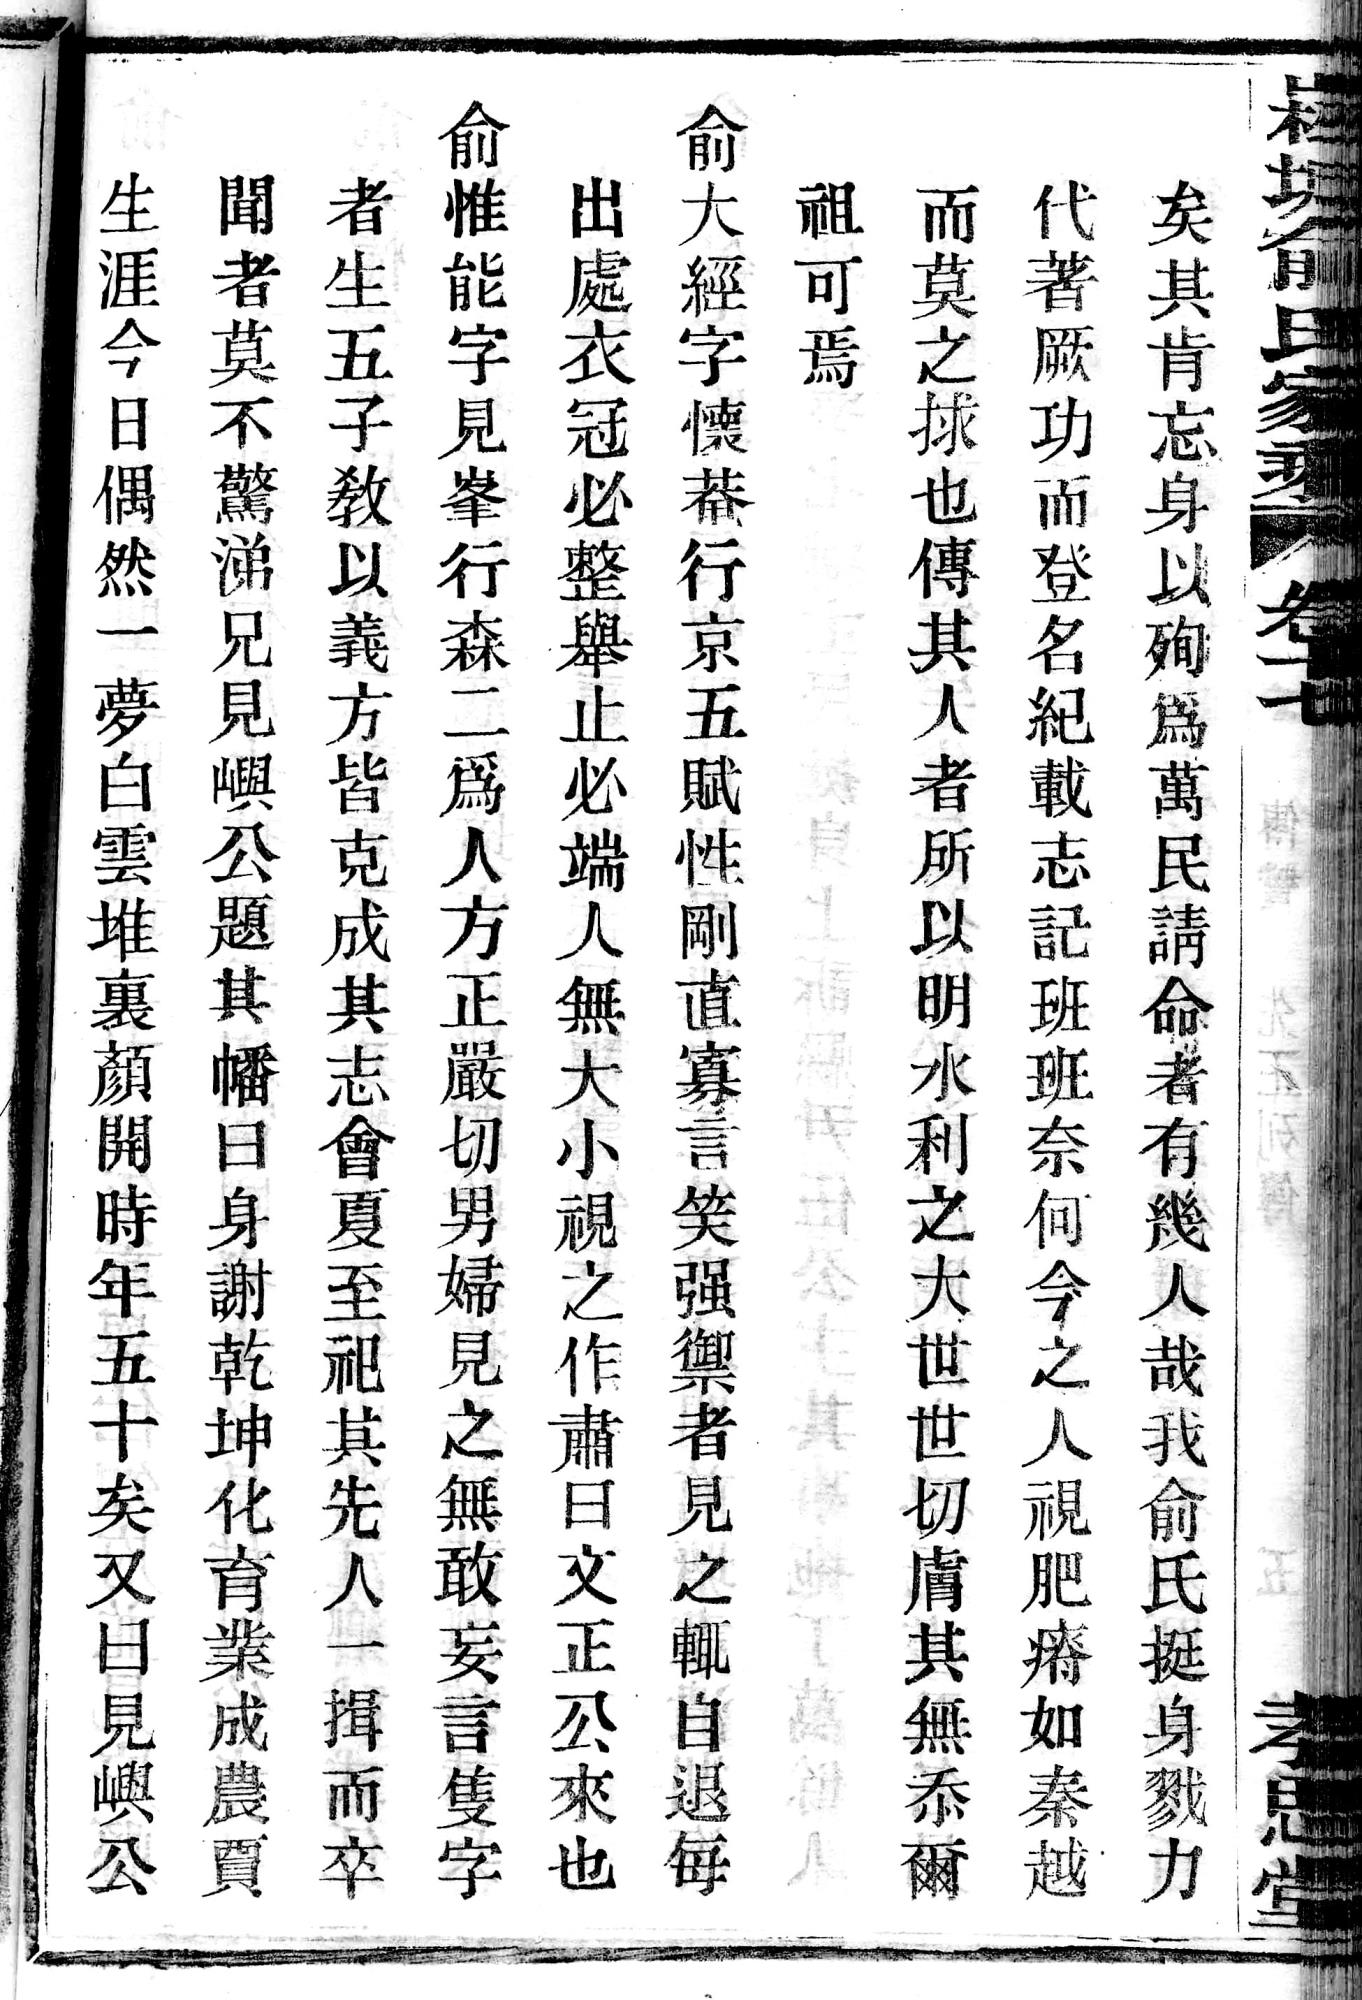 俞氏家乘 卷十七
孝思堂
矣其肯忘身以殉爲萬民請命者有幾人哉我俞氏挺身戮力
代著厥功而登名紀載志記班班奈何今之人視肥瘠如秦越
而莫之捄也傳其人者所以明水利之大世世切膚其無忝爾
祖可焉
俞大經字懷菴行京五賦性剛直寡言笑强禦者見之輒自退每
出處衣冠必整舉止必端人無大小視之作肅曰文正公來也
俞惟能字見峯行森二爲人方正嚴切男婦見之無敢妄言隻字
者生五子敎以義方皆克成其志會夏至祀其先人一揖而卒
聞者莫不驚涕兄見嶼公題其幡曰身謝乾坤化育業成農賈
生涯今日偶然一夢白雲堆裏顏開時年五十矣又曰見嶼公